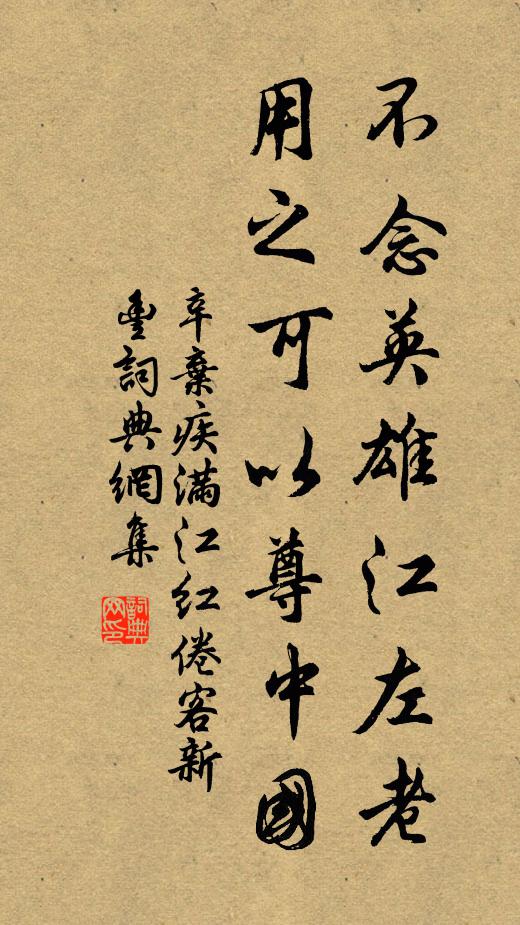 不念英雄江左老
用之可以尊中國
辛棄疾滿江红倦客新
豐詞典網集
詞典
网印